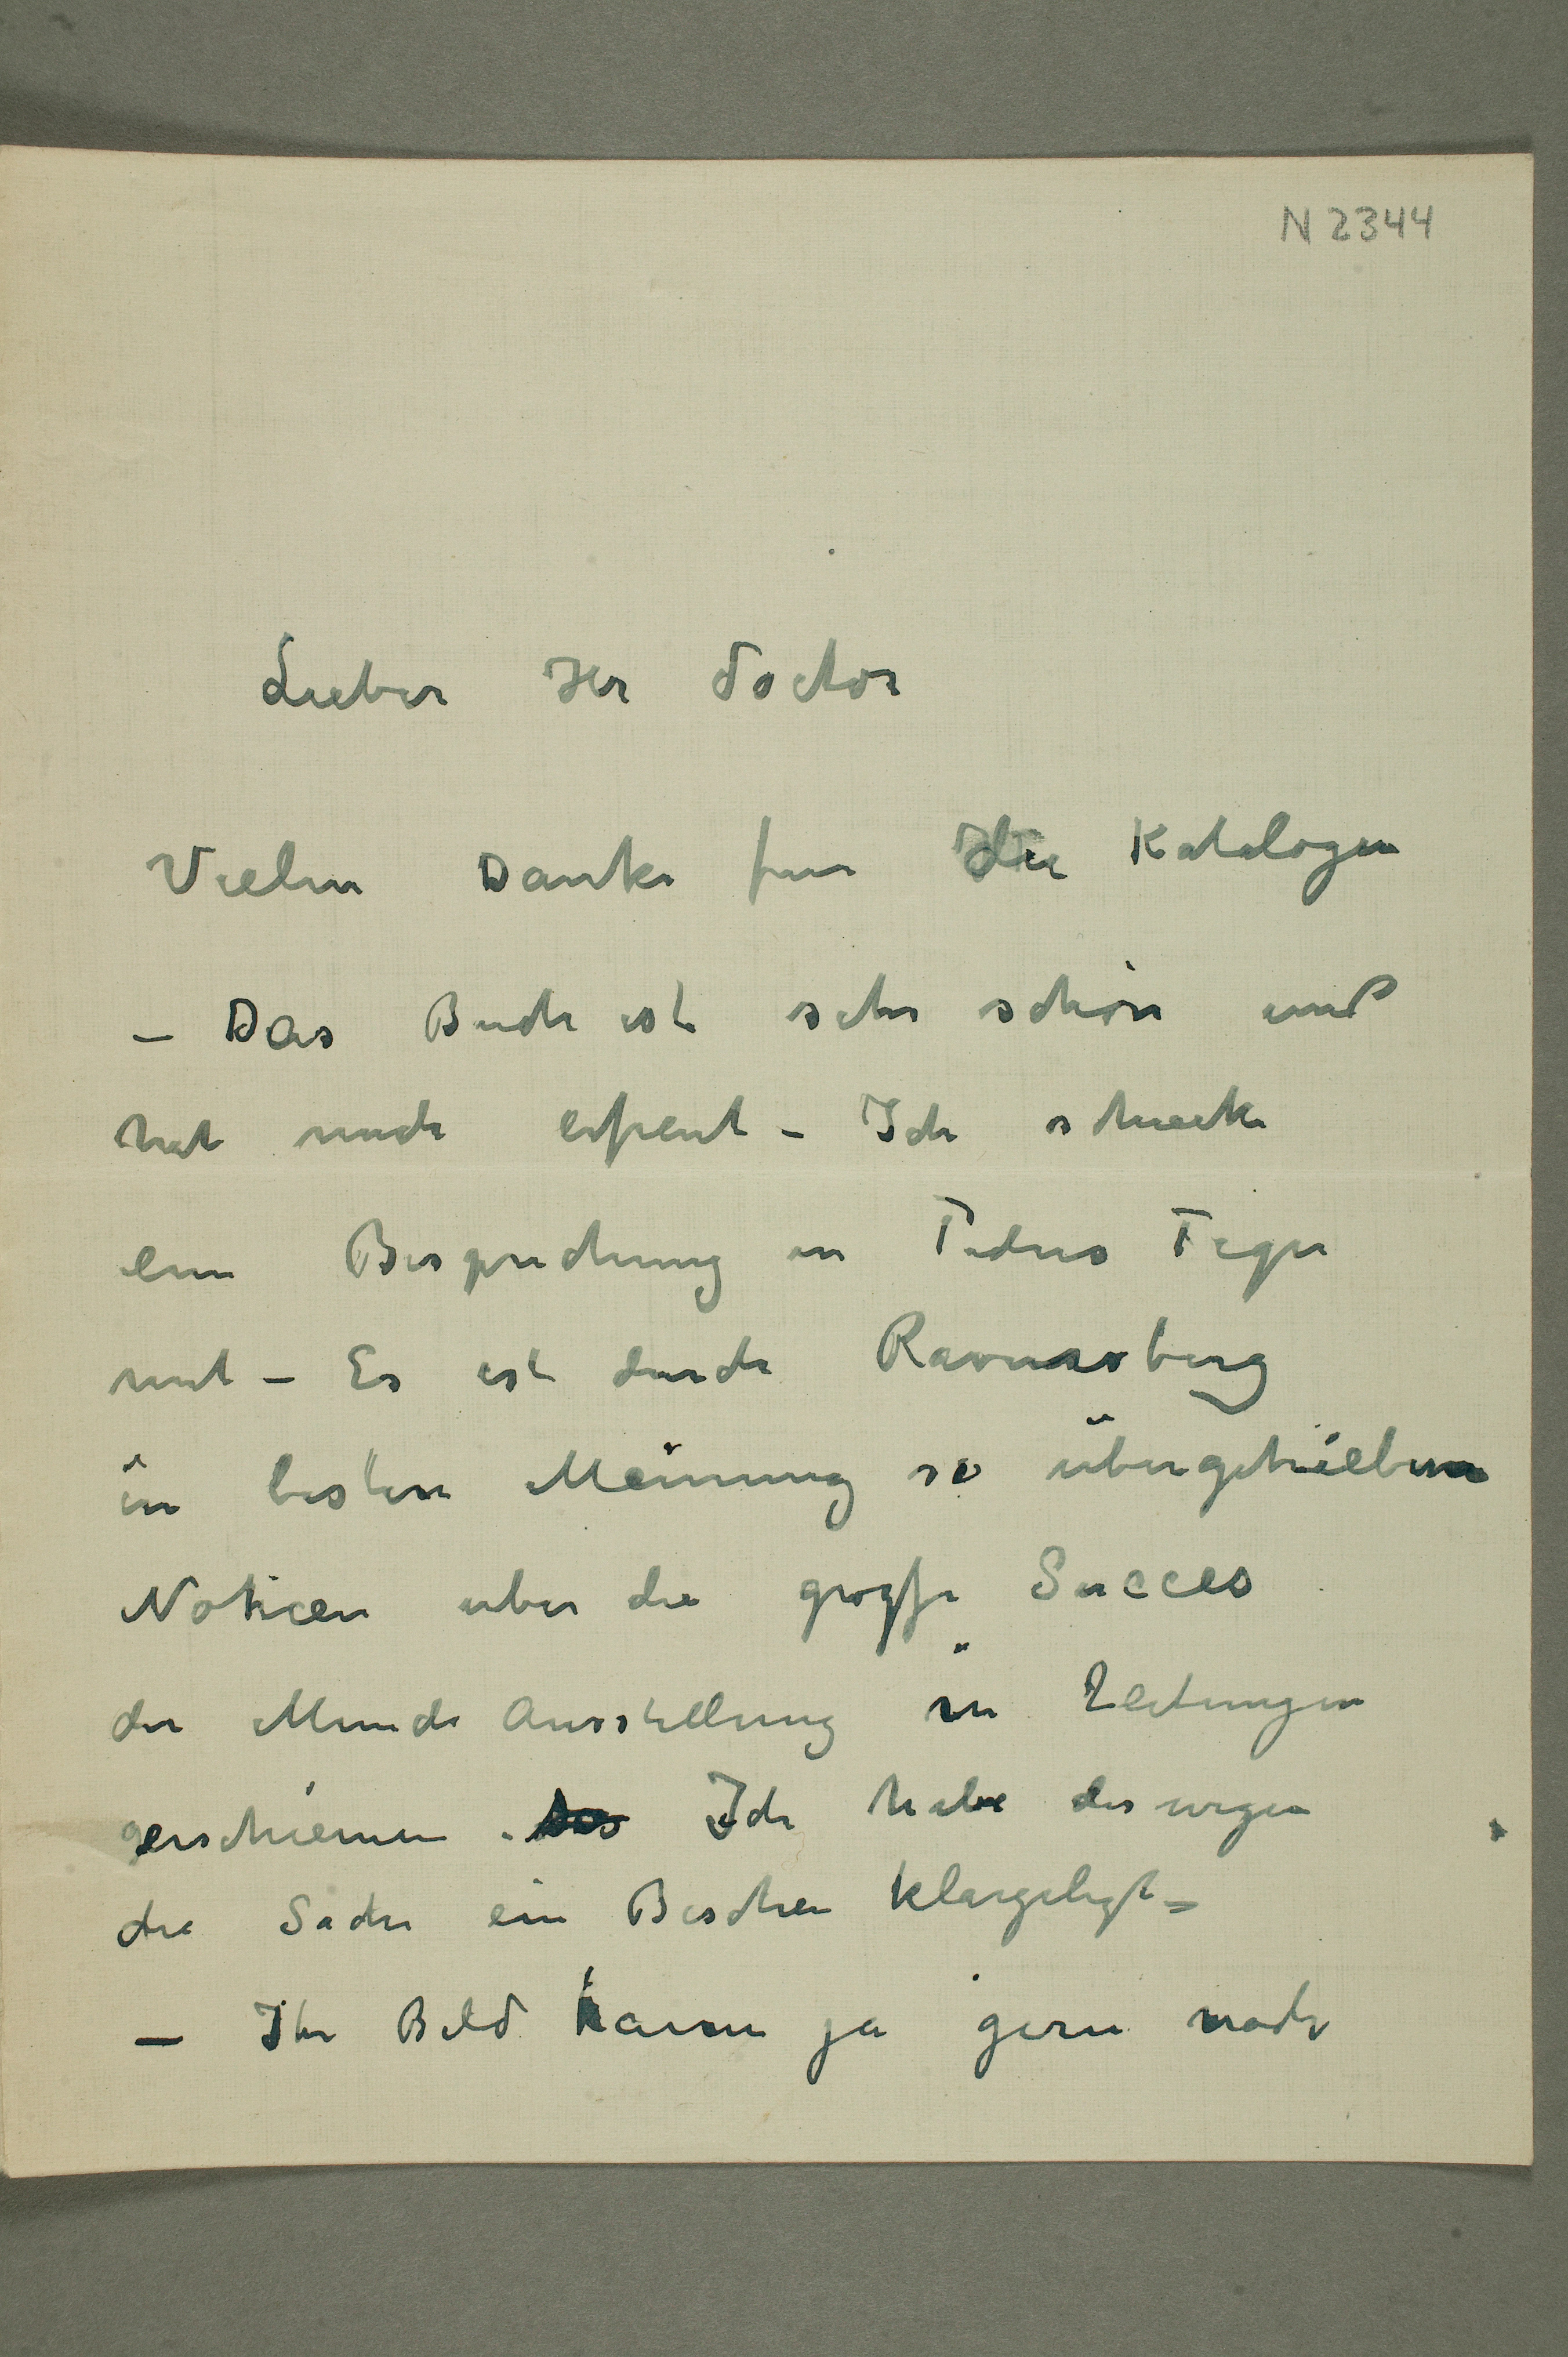 N 2344
Lieber Her Doctor
Vielen Danke fur die Katalogen
– Das Buch ist sehr schön und
hat mich erfreut – Ich schicke
eine Besprechung in Tidens Tegn
mit – Es ist durch Ravensberg
in besten Meinung so übergetrieben
Noticen uber die grosse Succes
der Munch Ausstellung in Zeitungen
gerschienen. Ich habe deswegen
die Sache ein Bischen klargelegt –
– Ihr Bild kann ja gern noch